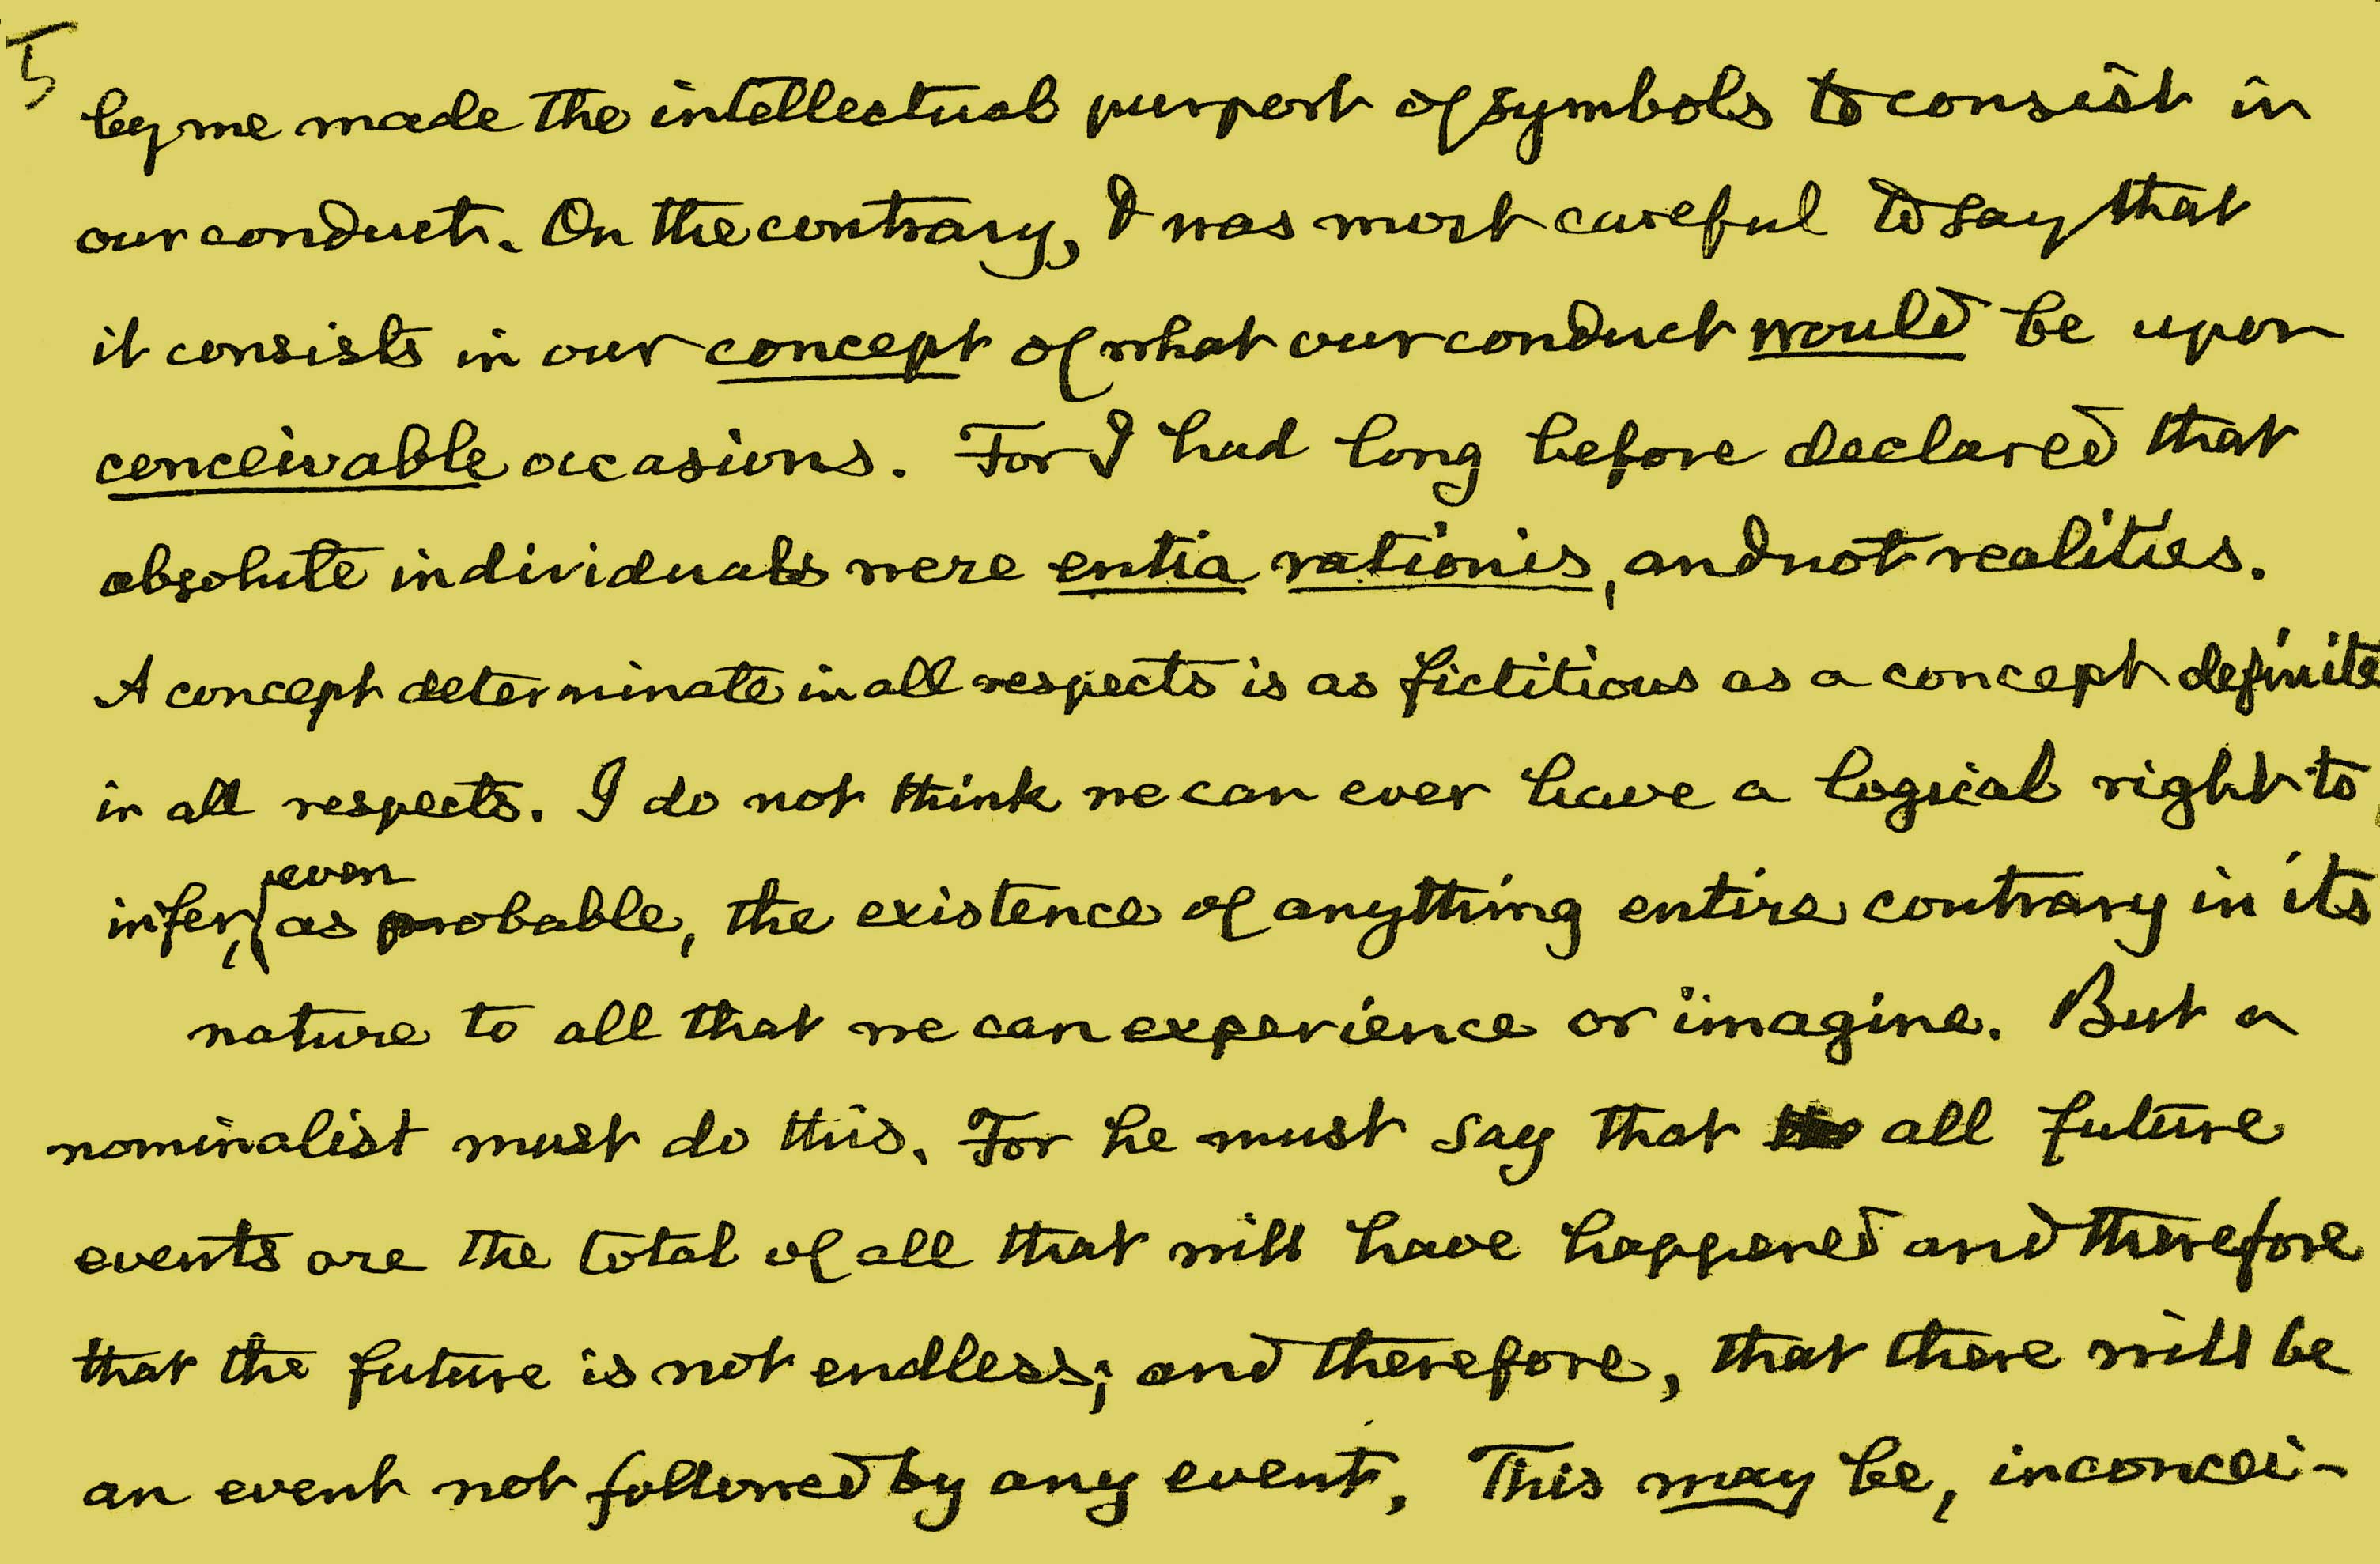 5
by me made the intellectual purport of symbols to consist in
our conduct. On the contrary, I was most careful to say that
it consists in our concept of what our conduct would be upon
conceivable occasions. For I had long before declared that
absolute individuals were entia rationis, and not realities.
A concept determinate in all respects is as fictitious as a concept definite
in all respects. I do not think we can ever have a logical right to
even
infer, as probable, the existence of anything entire contrary in its
nature to all that we can experience or imagine. But a
nominalist must do this. For he must say that all future
events are the total of all that will have happened and therefore
that the future is not endless; and therefore, that there will be
an event not followed by any event. This may be, inconcei-